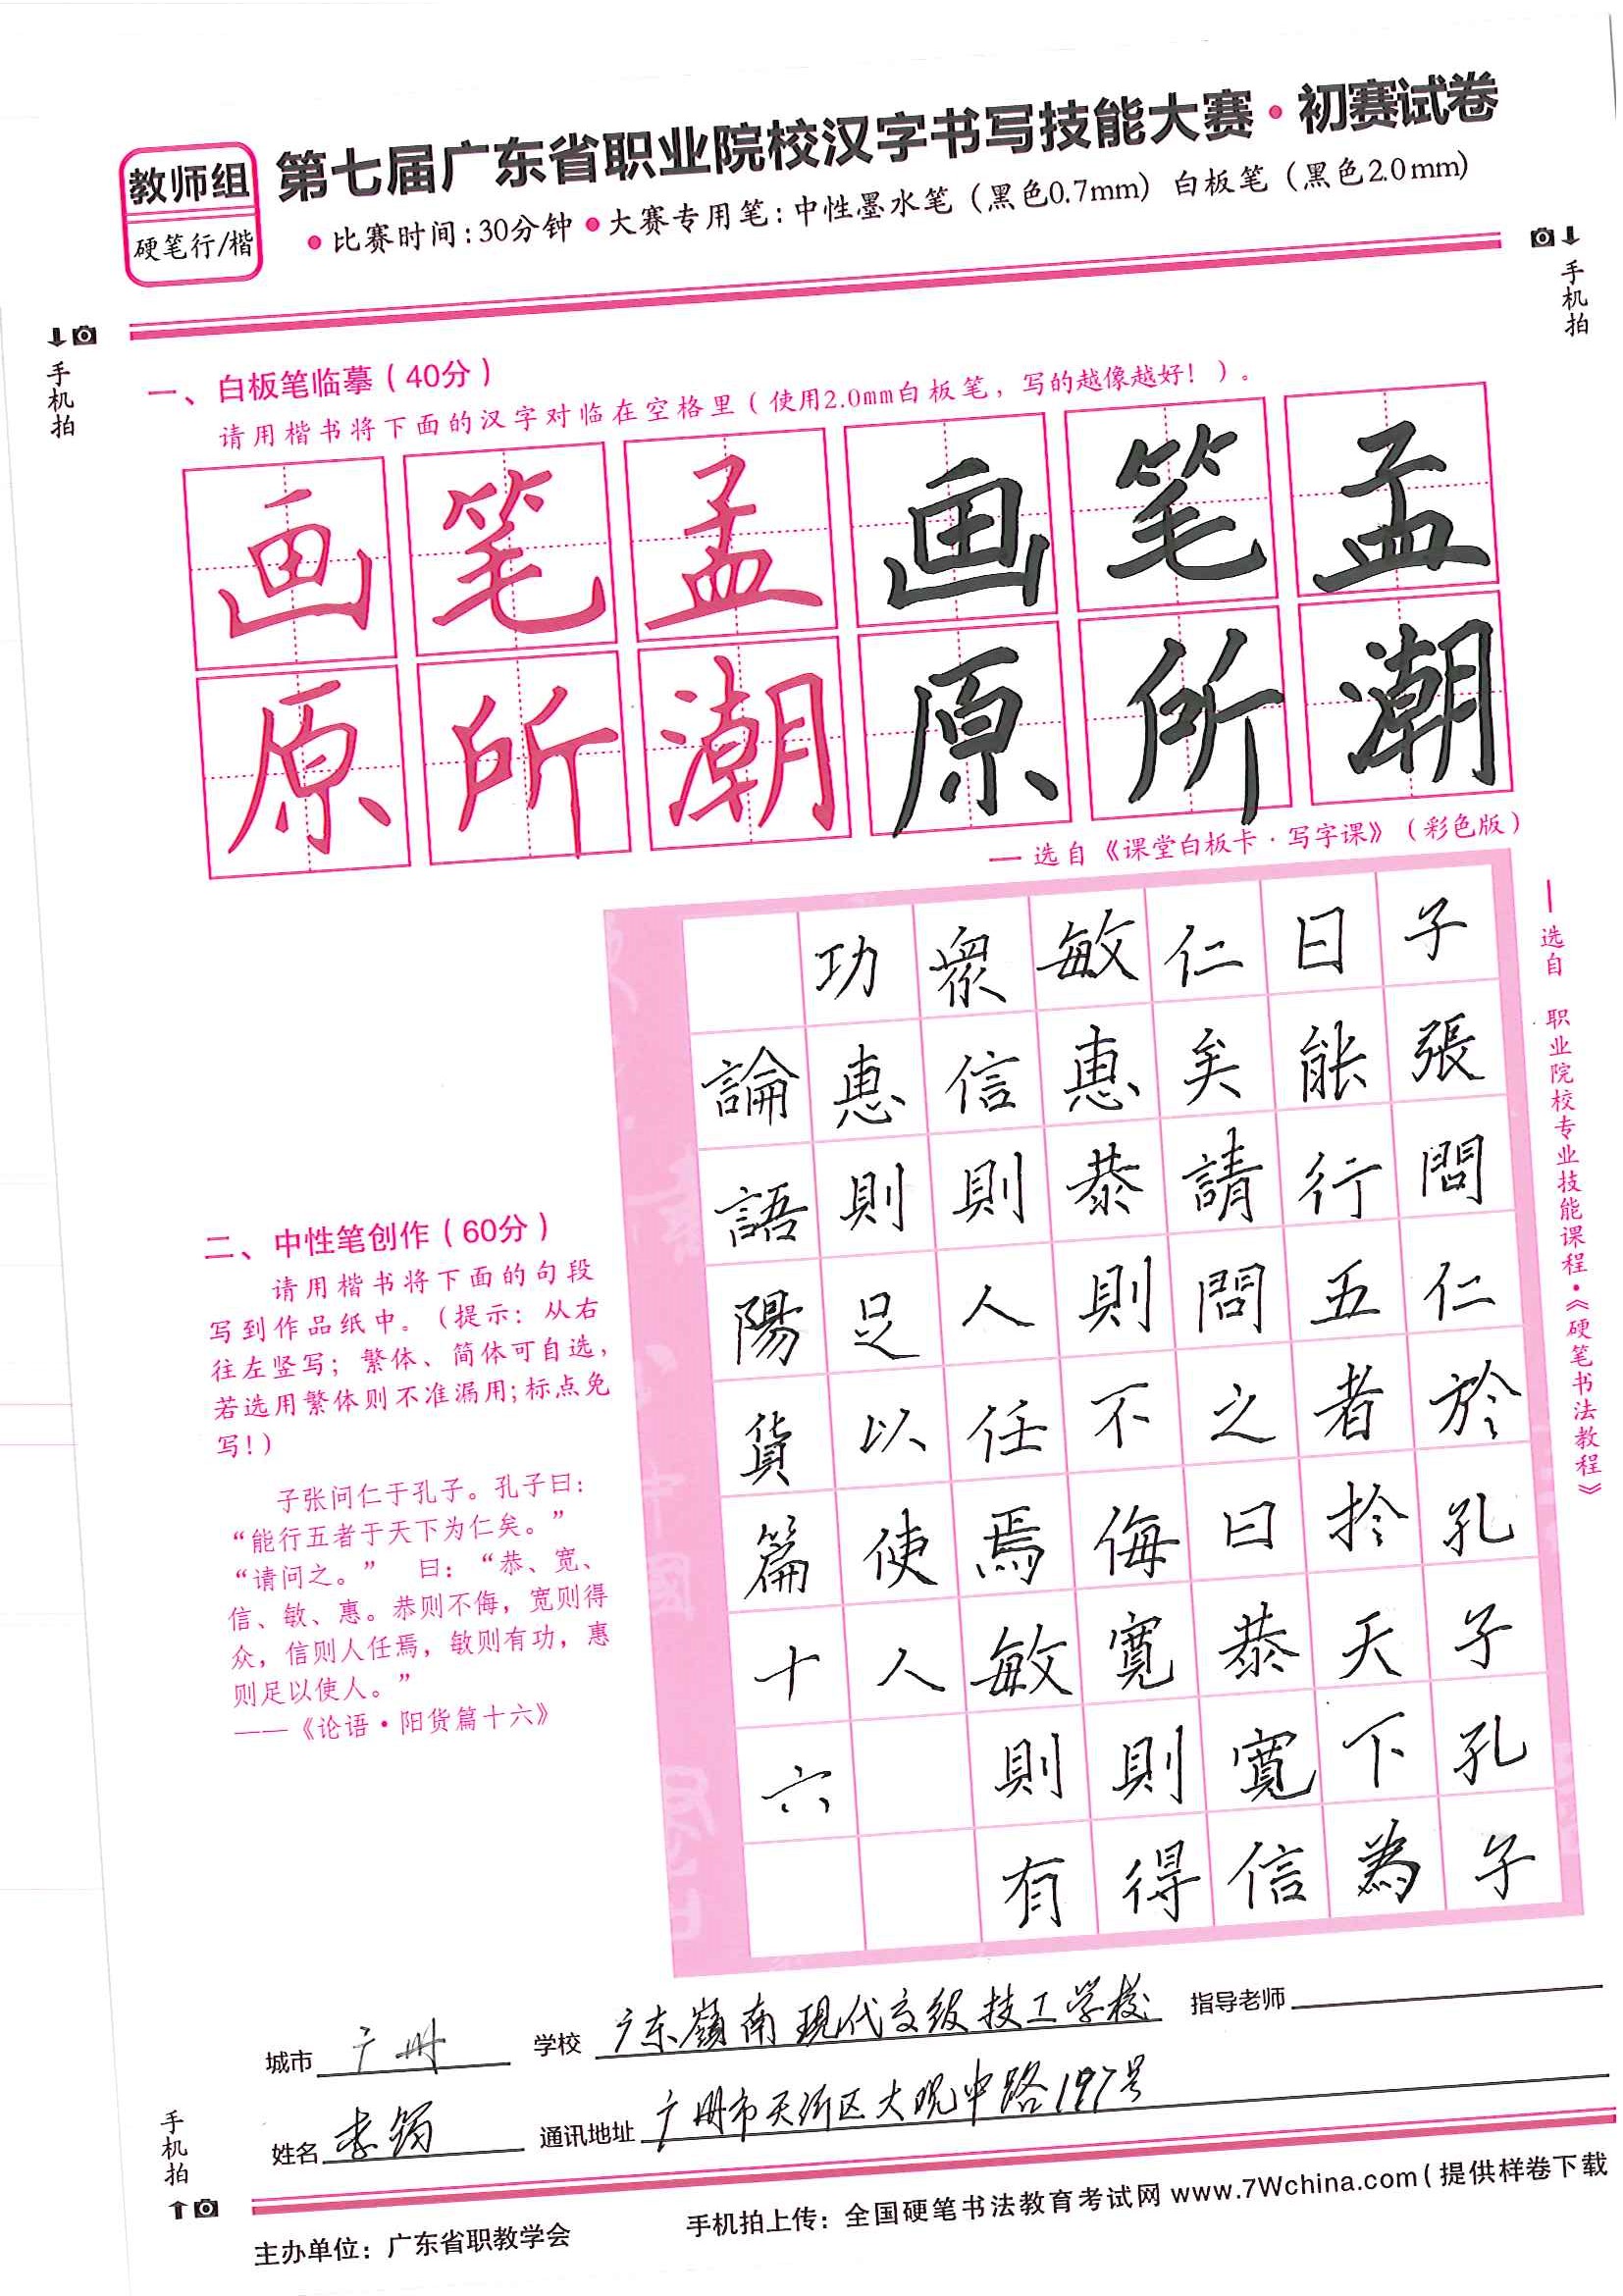 教师组
硬笔行/楷
第七届广东省职业院校汉字书写技能大赛·初赛试卷
•比赛时间:30分钟•大赛专用笔:中性墨水笔(黑色0.7mm) 白板笔(黑色2.0mm)
手机拍
手机拍
一、白板笔临摹(40分)
请用楷书将下面的汉字对临在空格里(使用2.0mm白板笔,写的越像越好!)。
画笔孟画笔孟
原所潮原所潮
—选自《课堂白板卡·写字课》(彩色版)
—选自 职业院校专业技能课程·《硬笔书法教程》
子張問仁於孔子孔子
曰能行五者扵天下為
仁矣請問之曰恭寬信
敏惠恭則不侮寬則得
衆信則人任焉敏則有
功惠則足以使人
論語陽貨篇十六
二、中性笔创作(60分)
请用楷书将下面的句段
写到作品纸中。(提示:从右
往左竖写;繁体、简体可自选,
若选用繁体则不准漏用;标点免
写!)
子张问仁于孔子。孔子曰:
“能行五者于天下为仁矣。”
“请问之。” 曰:“恭、宽、
信、敏、惠。恭则不侮,宽则得
众,信则人任焉,敏则有功,惠
则足以使人。”
——《论语·阳货篇十六》
城市 广州 学校 广东嶺南現代高级技工学校 指导老师
姓名 李 通讯地址 广州市天河区大观中路197号
手机拍
主办单位:广东省职教学会
手机拍上传:全国硬笔书法教育考试网 www.7Wchina.com(提供样卷下载